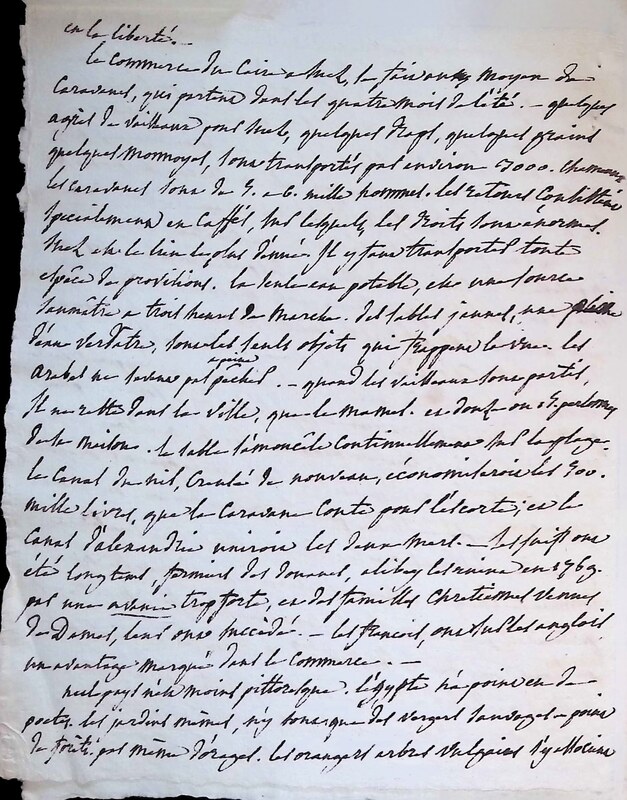 en la liberté. —
le commerce du Caire a Suez, se fait au moyen de
Caravanes, qui partent dans les quatre mois de l'été. — quelques
agrès de vaisseaux pour Suez, quelques draps, quelques grains
quelques monnoyes, sont transportés par environ 3000. chameaux
les caravanes sont de 5. a 6. mille hommes. les retours consistent
spécialement en Caffés, sur lesquels, les droits sont énormes.
Suez est le lieu le plus dénué. Il y faut transporter toute
espèce de provisions. la seule eau potable, est une source
saumâtre a trois heures de marche. des sables jaunes, une plaine
d'eau verdâtre, sont les seuls objets qui frappent la vue. les
arabes ne savent pas pêcher. — quand les vaisseaux sont partis,
Il ne reste dans la ville, que le et douze ou 15. personnes
de sa maison. le sable s'amoncèle continuellement sur la plage.
le Canal du nil, creusé de nouveau, économiserois les 300.
mille livres, que la Caravane Coute pour l'escorte; et le
Canal d'alexandrie uniroit les deux mers. — les juifs ont
été longtems, fermiers des douanes, ali bey les ruina en 1769.
par une avanie trop forte, et des familles Chretiennes venues
de Damas, leur ont succédé. — les françois, ont sur les anglois
un avantage marqué dans le Commerce. —
nul pays n'est moins pittoresque. l'égypte n'a point eu de
poetes. les jardins mêmes, n'y sont que des vergers sauvages. point
de forêts. pas même d'orages. les orangers arbres vulgaires s'y